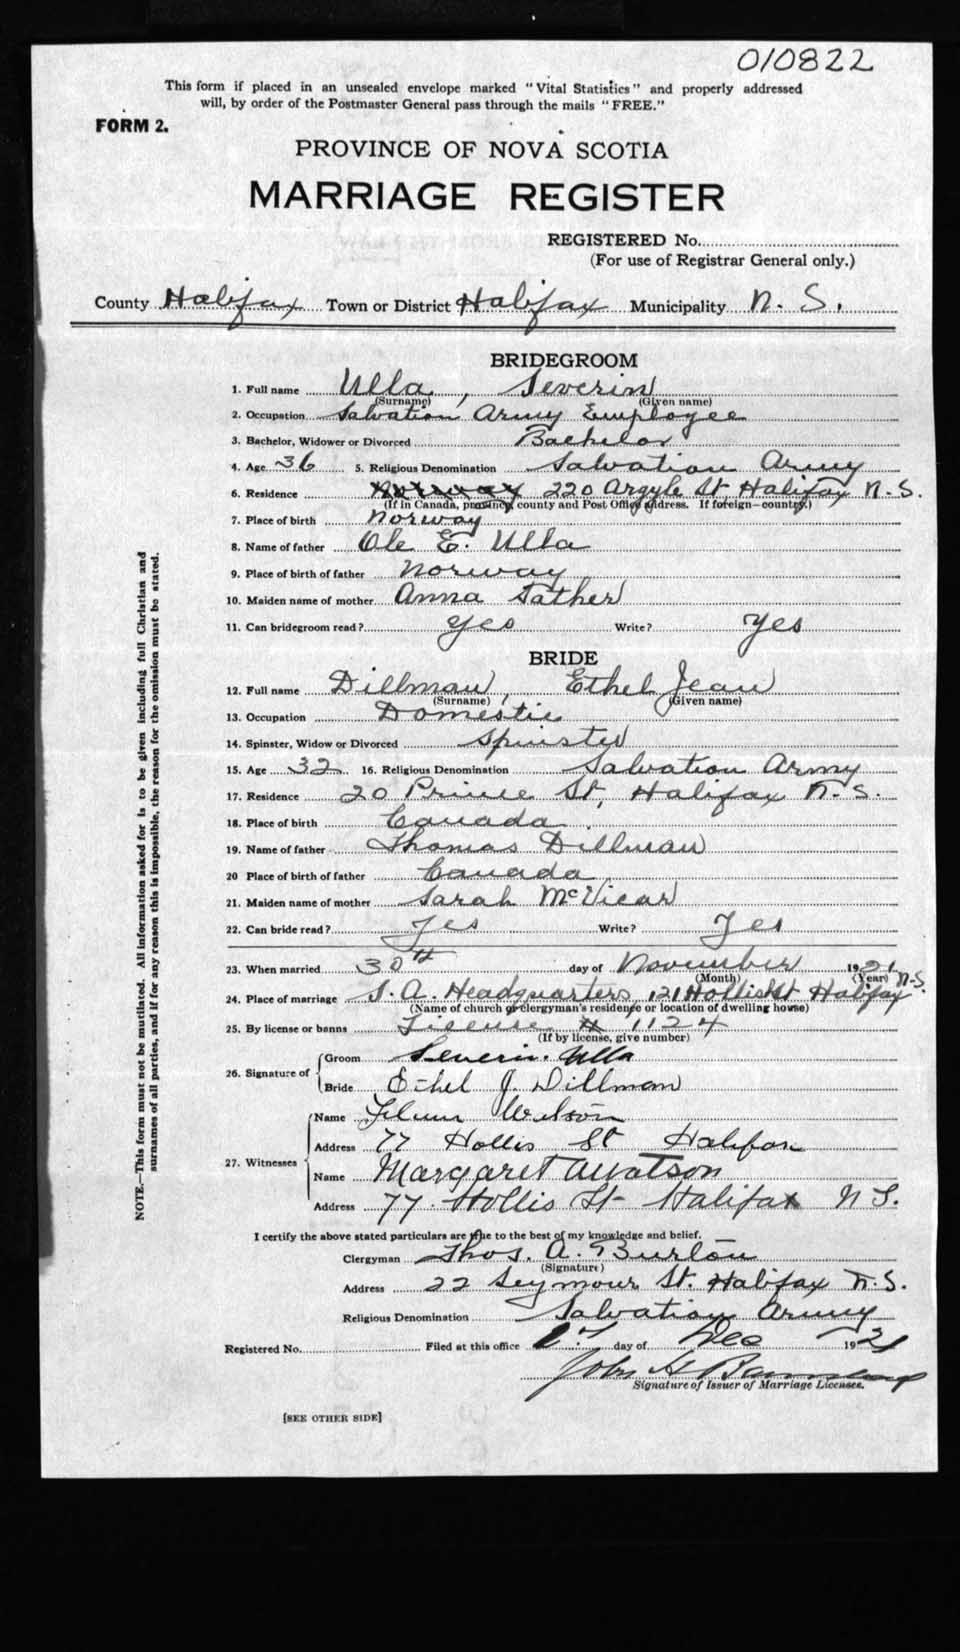 010822
This form if placed in an unsealed envelope marked "Vital Statistics" and properly addressed
will, by order of the Postmaster General pass through the mails "FREE."
FORM 2.
PROVINCE OF NOVA SCOTIA
MARRIAGE REGISTER
REGISTERED No.
(For use of Registrar General only.)
County Halifax Town or District Halifax Municipality N. S.
BRIDEGROOM
1. Full name Ulla, Severin
(Surname) (Given name)
2. Occupation Salvation Army Employee
3. Bachelor, Widower or Divorced Bachelor
4. Age 36 5. Religious Denomination Salvation Army
6. Residence Norway 220 Argyle St, Halifax N.S.
(If in Canada, province, county and Post Office address. If foreign—country.)
7. Place of birth Norway
8. Name of father Ole E. Ulla
9. Place of birth of father Norway
10. Maiden name of mother Anna Sather
11. Can bridegroom read? Yes Write? Yes
BRIDE
12. Full name Dillman, Ethel Jean
(Surname) (Given name)
13. Occupation Domestic
14. Spinster, Widow or Divorced Spinster
15. Age 32 16. Religious Denomination Salvation Army
17. Residence 20 Prince St, Halifax N.S.
18. Place of birth Canada
19. Name of father Thomas Dillman
20 Place of birth of father Canada
21. Maiden name of mother Sarah McVicar
22. Can bride read? Yes Write? Yes
23. When married 30th day of November 1921
(Month) (Year)
24. Place of marriage S. A. Headquarters, 121 Hollis St Halifax N.S.
(Name of church or clergyman's residence or location of dwelling house)
25. By license or banns License # 1124
(If by license, give number)
26. Signature of Groom Severin Ulla
Bride Ethel J. Dillman
27. Witnesses
Name Wilson
Address 77 Hollis St Halifax
Name Margaret Watson
Address 77 Hollis St Halifax N S.
I certify the above stated particulars are true to the best of my knowledge and belief.
Clergyman Thos. A. Burton
(Signature)
Address 22 Seymour St. Halifax N.S.
Religious Denomination Salvation Army
Registered No. Filed at this office day of Dec 1921
John H
Signature of Issuer of Marriage Licenses.
[SEE OTHER SIDE]
NOTE.—This form must not be mutilated. All information asked for is to be given including full Christian and
surnames of all parties, and if for any reason this is impossible, the reason for the omission must be stated.